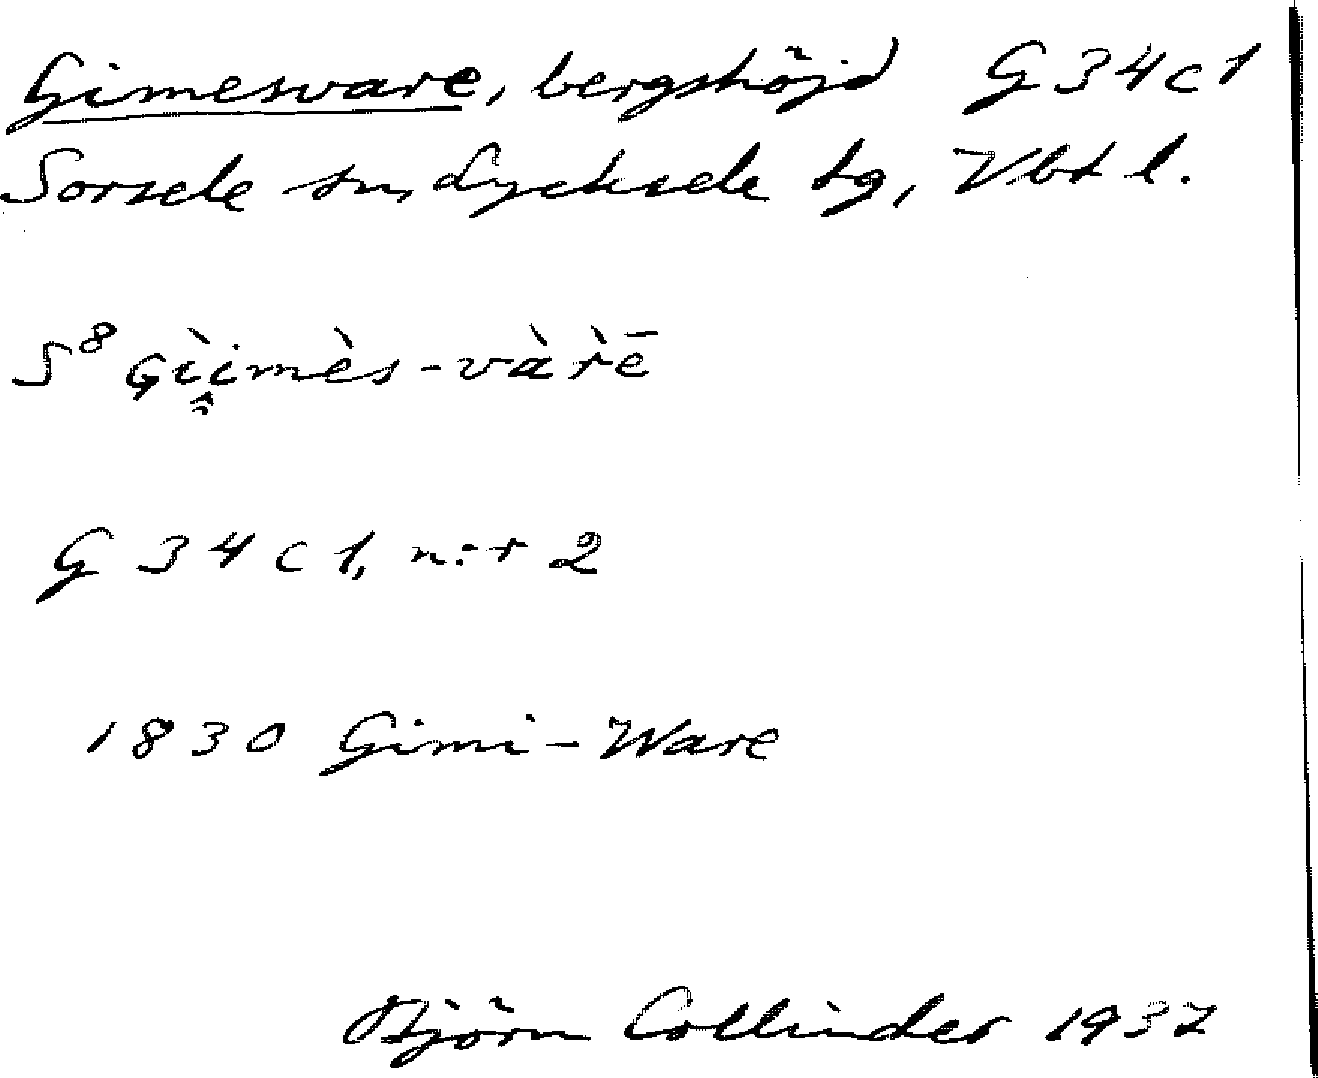 Gimesvare, bergshöjd G 34 c 1
Sorsele sn, Lycksele tg, Vbt l.
S⁸ Gi̭ìmès-vàr̀ē
G 34 c 1, n:r 2
1830 Gimi-Ware
Björn Collinder 1937